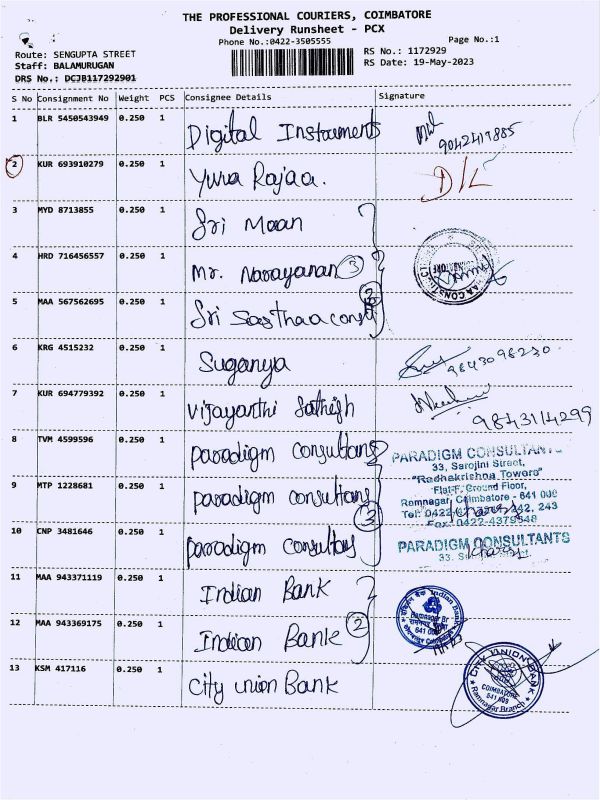 THE PROFESSIONAL COURIERS, COIMBATORE
Delivery Runsheet - PCX
Phone No.:0422-3505555
Page No.:1
Route: SENGUPTA STREET
RS No.: 1172929
Staff: BALAMURUGAN
RS Date: 19-May-2023
DRS No.: DCJB117292901
S No Consignment No Weight PCS Consignee Details Signature
1 BLR 5450543949 0.250 1 Digital Instruments 9042417885
2 KUR 693910279 0.250 1 Yuva Rajaa. D/L
3 MYD 8713855 0.250 1 Sri Maan
4 HRD 716456557 0.250 1 Mr. Narayanan 3
5 MAA 567562695 0.250 1 Sri Sasthaa const
6 KRG 4515232 0.250 1 Suganya 9843098230
7 KUR 694779392 0.250 1 Vijayanthi Sathish 9843114299
8 TVM 4599596 0.250 1 Paradigm Consultans PARADIGM CONSULTANTS
33, Sarojini Street,
"Radhakrishna Towers"
9 MTP 1228681 0.250 1 Paradigm Consultans Flat-F, Ground Floor,
Ramnagar, Coimbatore - 641 009
Tel: 0422 342, 243
3 Fax: 0422-4379548
10 CNP 3481646 0.250 1 Paradigm Consultans PARADIGM CONSULTANTS
33.
11 MAA 943371119 0.250 1 Indian Bank
12 MAA 943369175 0.250 1 Indian Bank 2
13 KSM 417116 0.250 1 City union Bank CITY UNION BANK
COIMBATORE
641 009
Ramnagar Branch